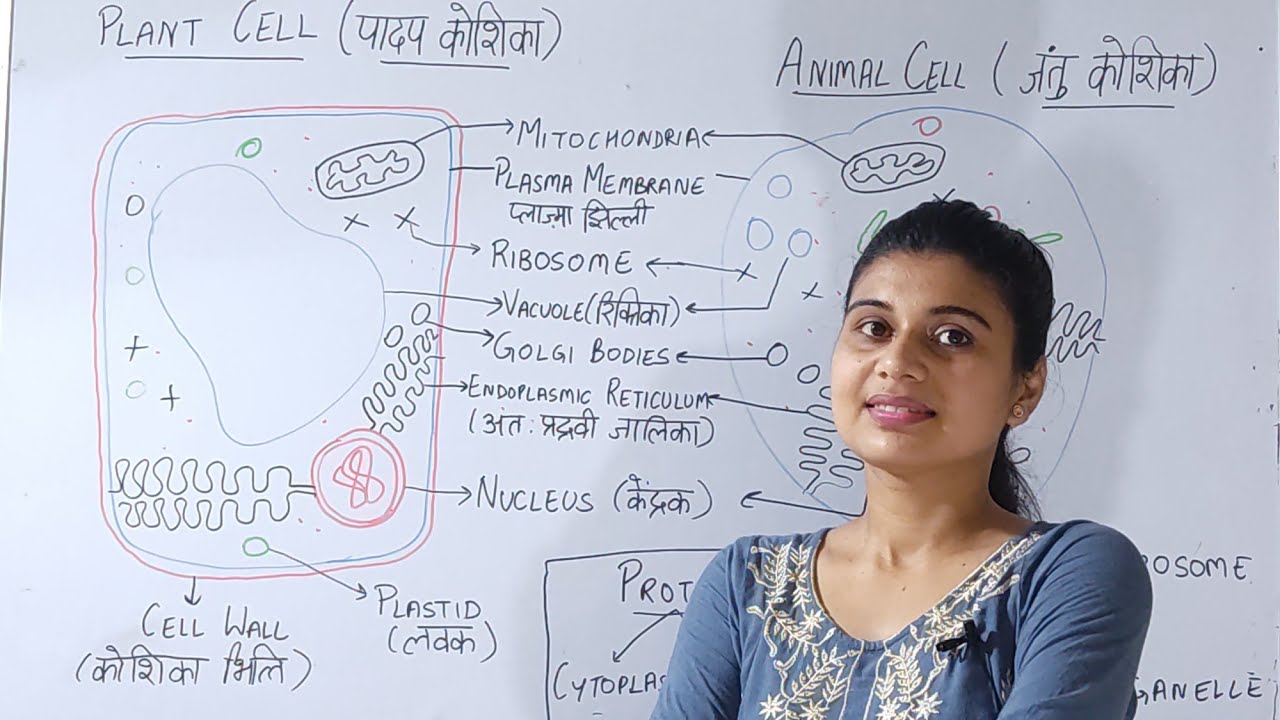 PLANT CELL (पादप कोशिका)
ANIMAL CELL (जंतु कोशिका)
MITOCHONDRIA
PLASMA MEMBRANE
प्लाज़्मा झिल्ली
RIBOSOME
VACUOLE (रिक्तिका)
GOLGI BODIES
ENDOPLASMIC RETICULUM
(अंत: प्रद्रवी जालिका)
NUCLEUS (केंद्रक)
CELL WALL
(कोशिका भित्ति)
PLASTID
(लवक)